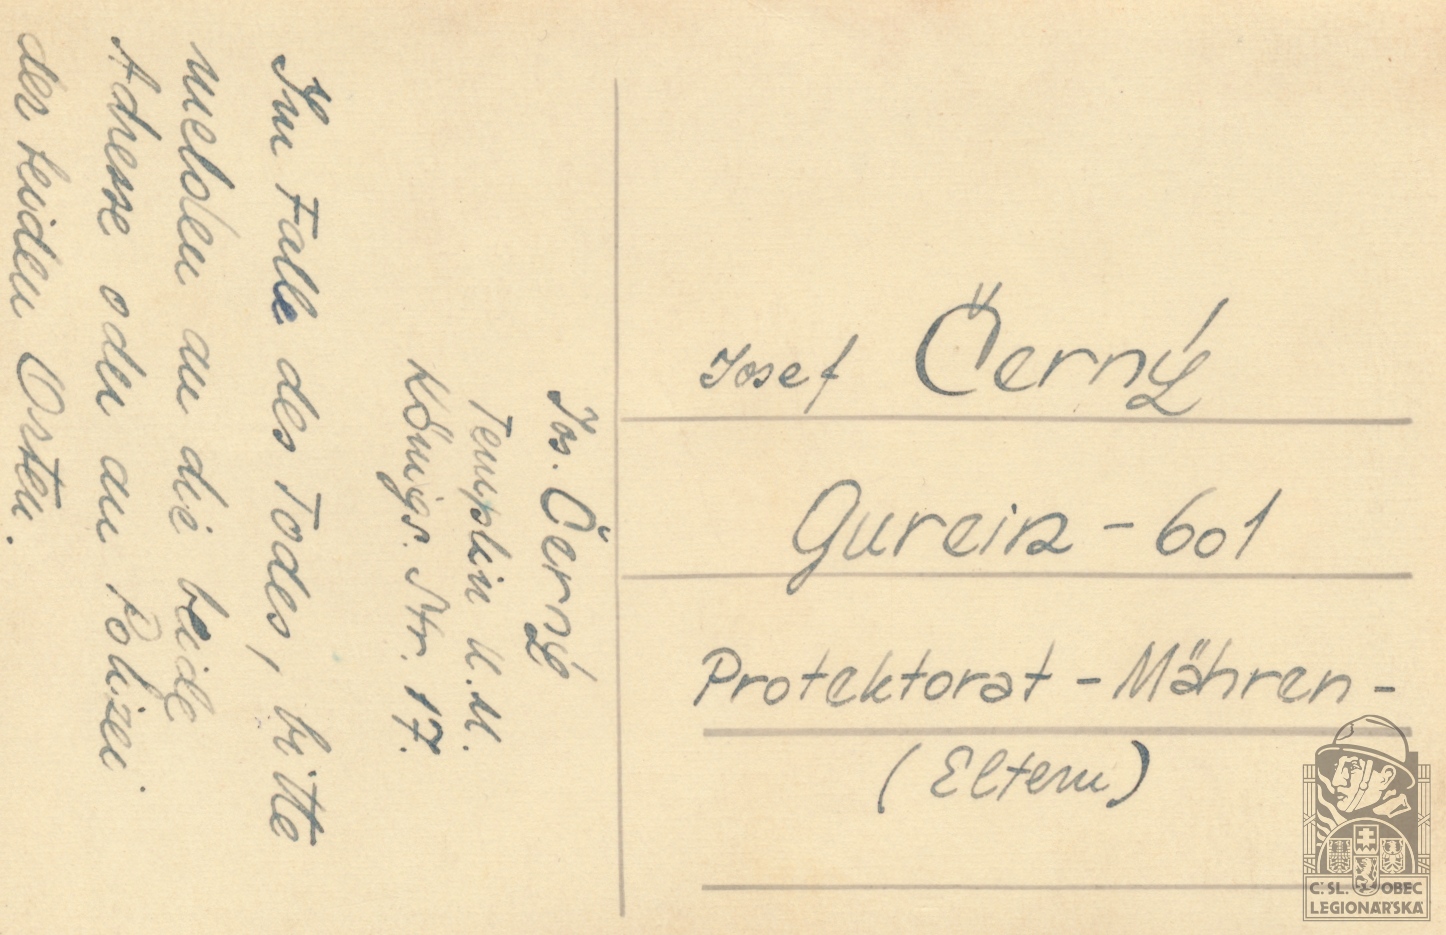 Im Falle des Todes, bitte
melden an die beide
Adresse oder an Polizei
der beiden Orten.
Jos. Černý
Templin U.M.
Königs. Str. 17.
Josef Černý
Gurein - 601
Protektorat - Mähren -
(Eltern)
Č. SL. OBEC
LEGIONÁŘSKÁ